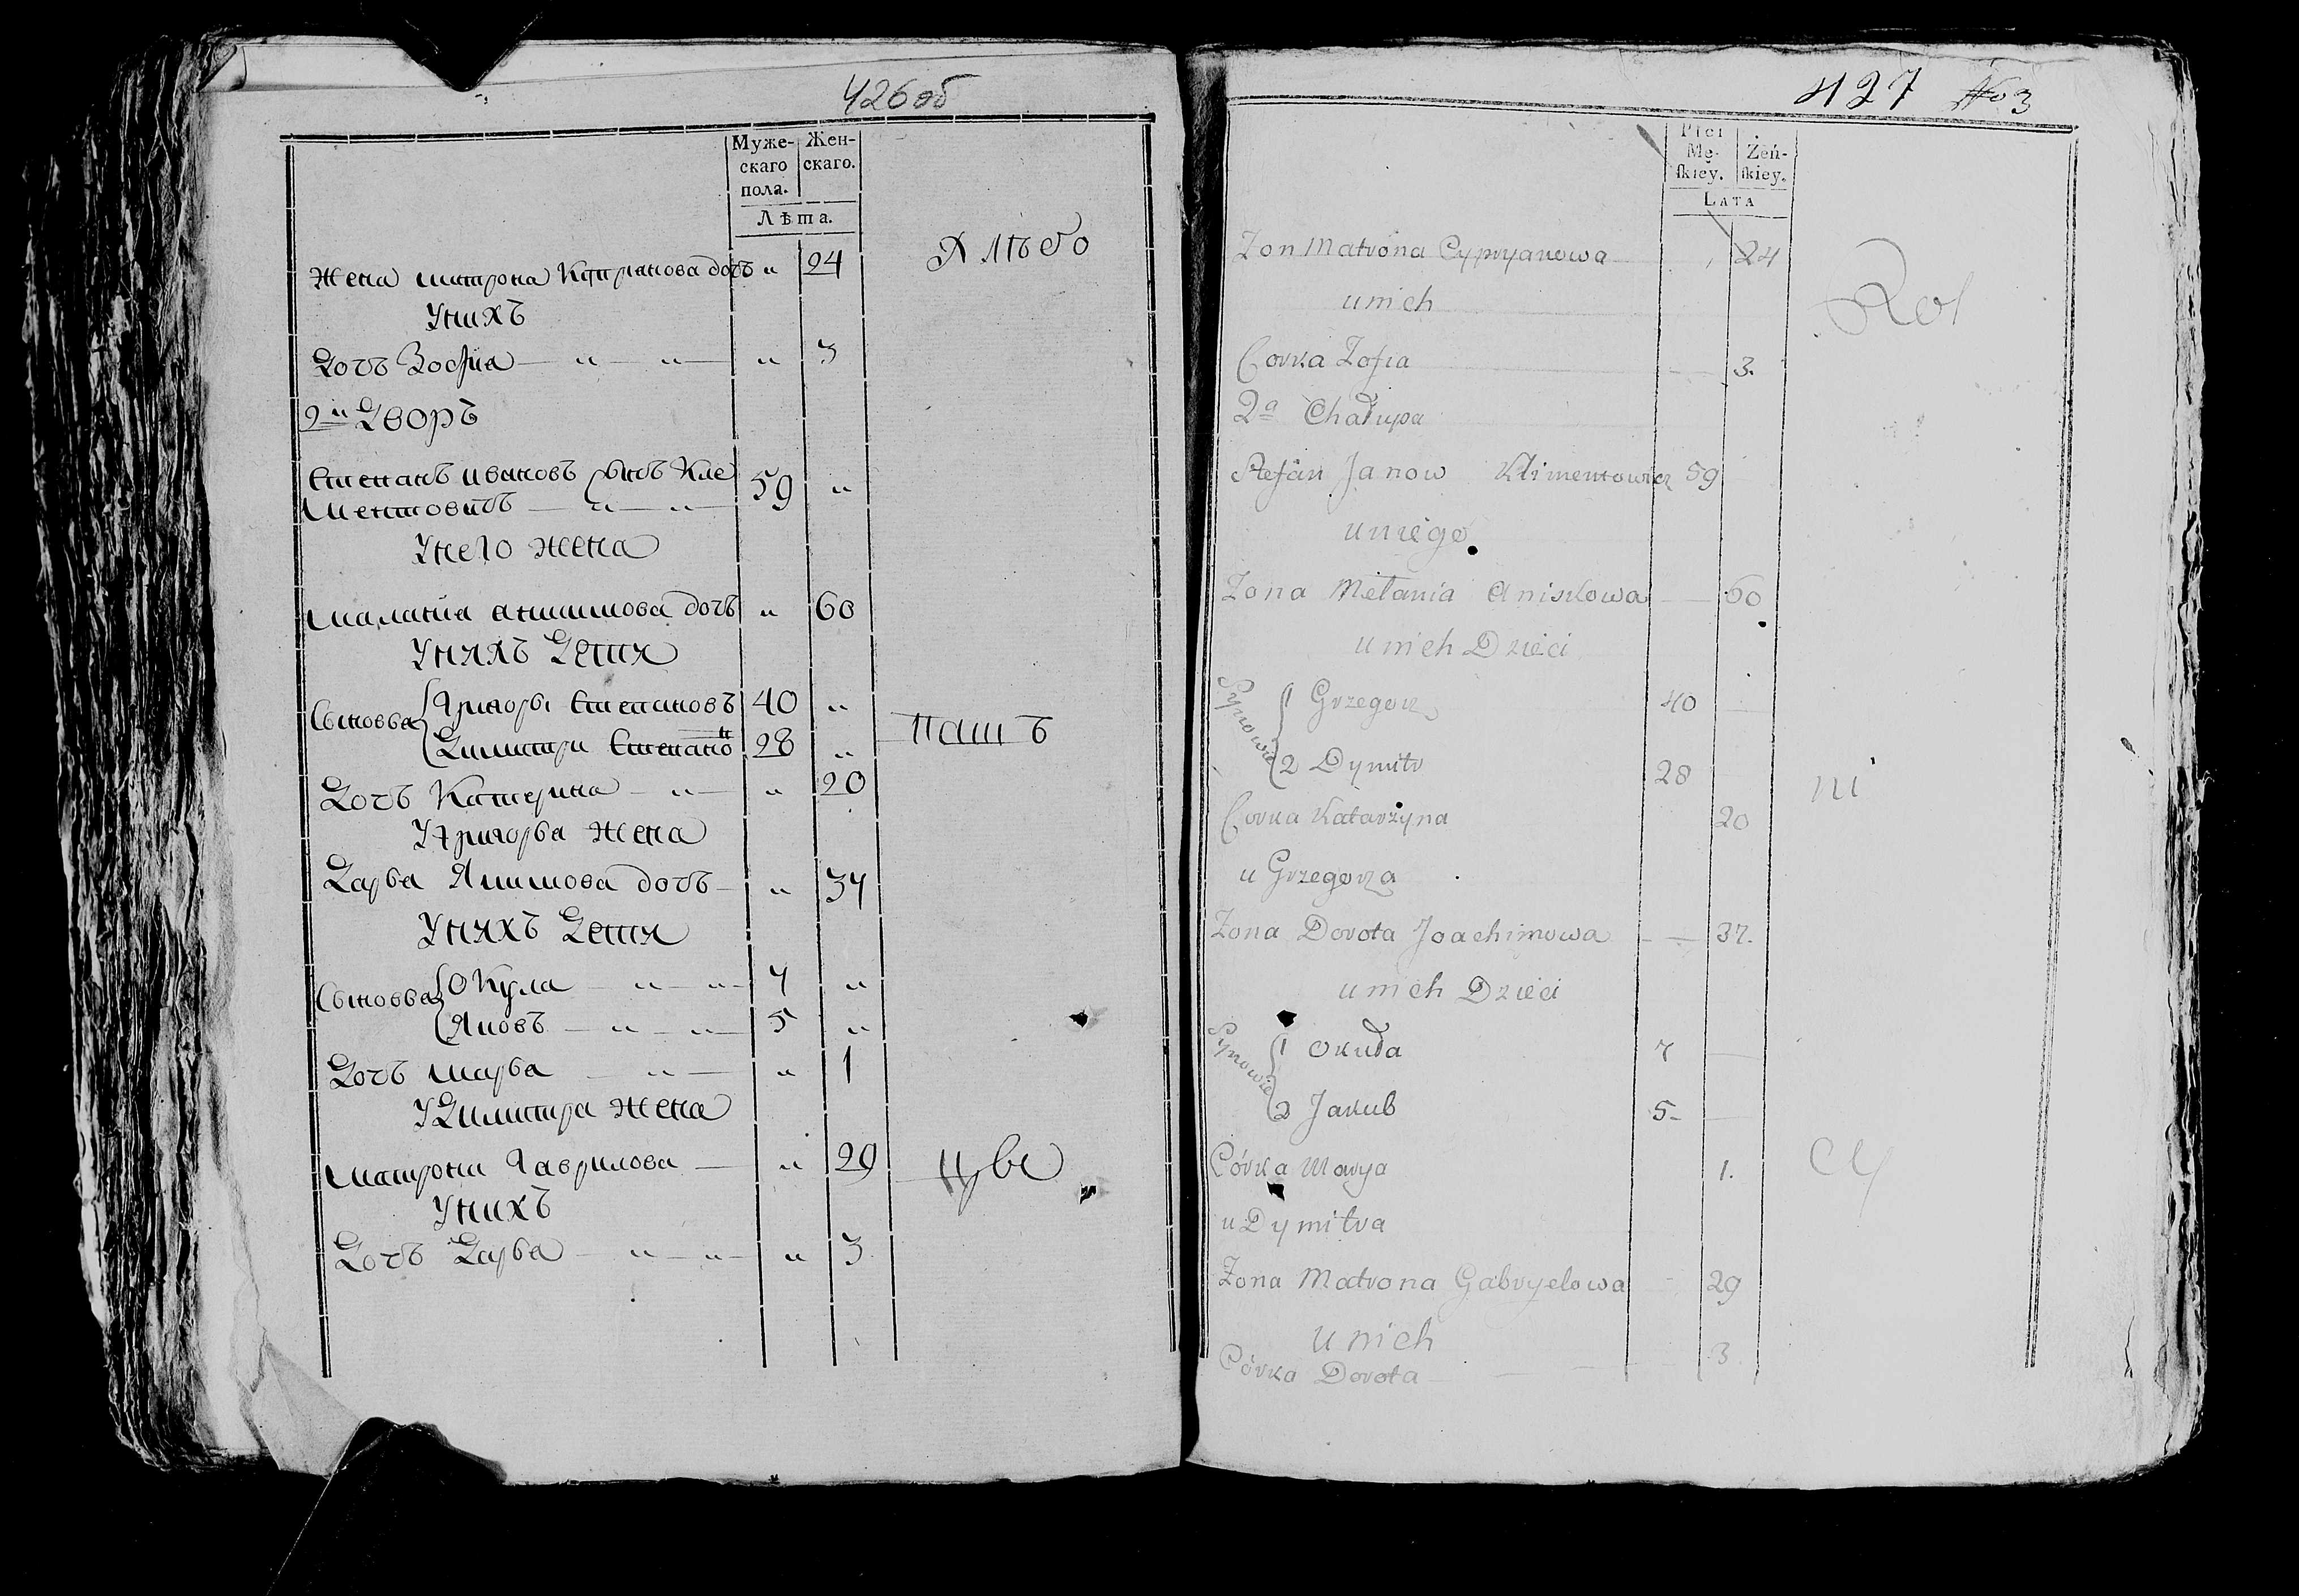 426 об
Муже- Жен-
скаго скаго.
пола.
Лѣта.
Жена матрона Киприанова дочъ " 24
Хлѣбо
Унихъ
Дочъ Зофиа — " — " — " 3
2й Дворъ
Степанъ ивановъ сынъ Кле
ментовичъ — " — " — 59 "
Унего жена
маланиа анимова дочъ " 60
Унихъ Дети
Сыновьа Григорьі Степановъ 40 "
Димитри Степано 28 "
пашъ
Дочъ Катерина — " — " 20
У Григорьа жена
Дарьа Якимова дочъ — " 34
Унихъ Дети
Сыновьа Окула — " — " — 7 "
Яковъ — " — " — 5 "
Дочъ марьа — " — " 1
У Димитра жена
матрона Гаврилова — " 29
цы
Унихъ
Дочъ Дарьа — " — " — " 3
427 3
Płci
Mę- Żeń-
ſkiey. ſkiey.
LATA
Zon Matrona Cypryanowa 24
unich
Rol
Corka Zofia — 3.
2a Chałupa
Stefan Janow Klimentowicz 59
uniego
Zona Mełania Aniskowa — 60
unich Dzieci
Synowie 1 Grzegorz 40 —
2 Dymitr 28
ni
Corka Katarzyna 20
u Grzegorza
Zona Dorota Joachimowa — — 37.
unich Dzieci
Synowie 1 Okuła 7 —
2 Jakub 5 — —
Córka Marya 1.
cy
u Dymitra
Zona Matrona Gabryelowa — 29
unich
Córka Dorota — — 3